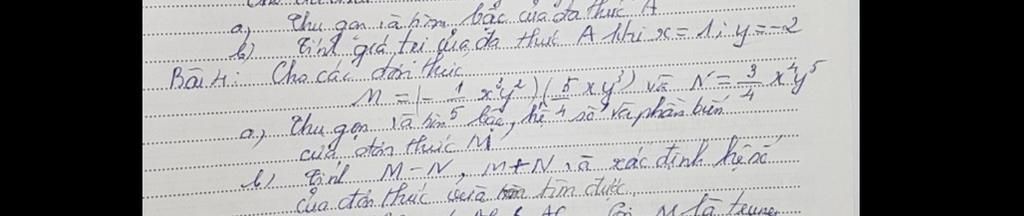 a, Thu gọn và tìm bậc của đa thức A
b) Tính giá trị của đa thức A khi x = 1; y = -2
Bài 4: Cho các đơn thức
M = (- 1/5 x³y²) (5/4 xy³) và N = 3/4 x⁴y⁵
a, Thu gọn và tìm bậc, hệ số và phần biến
của đơn thức M
b) Tính M - N, M + N và xác định hệ số
của đơn thức vừa tìm được
M là trung